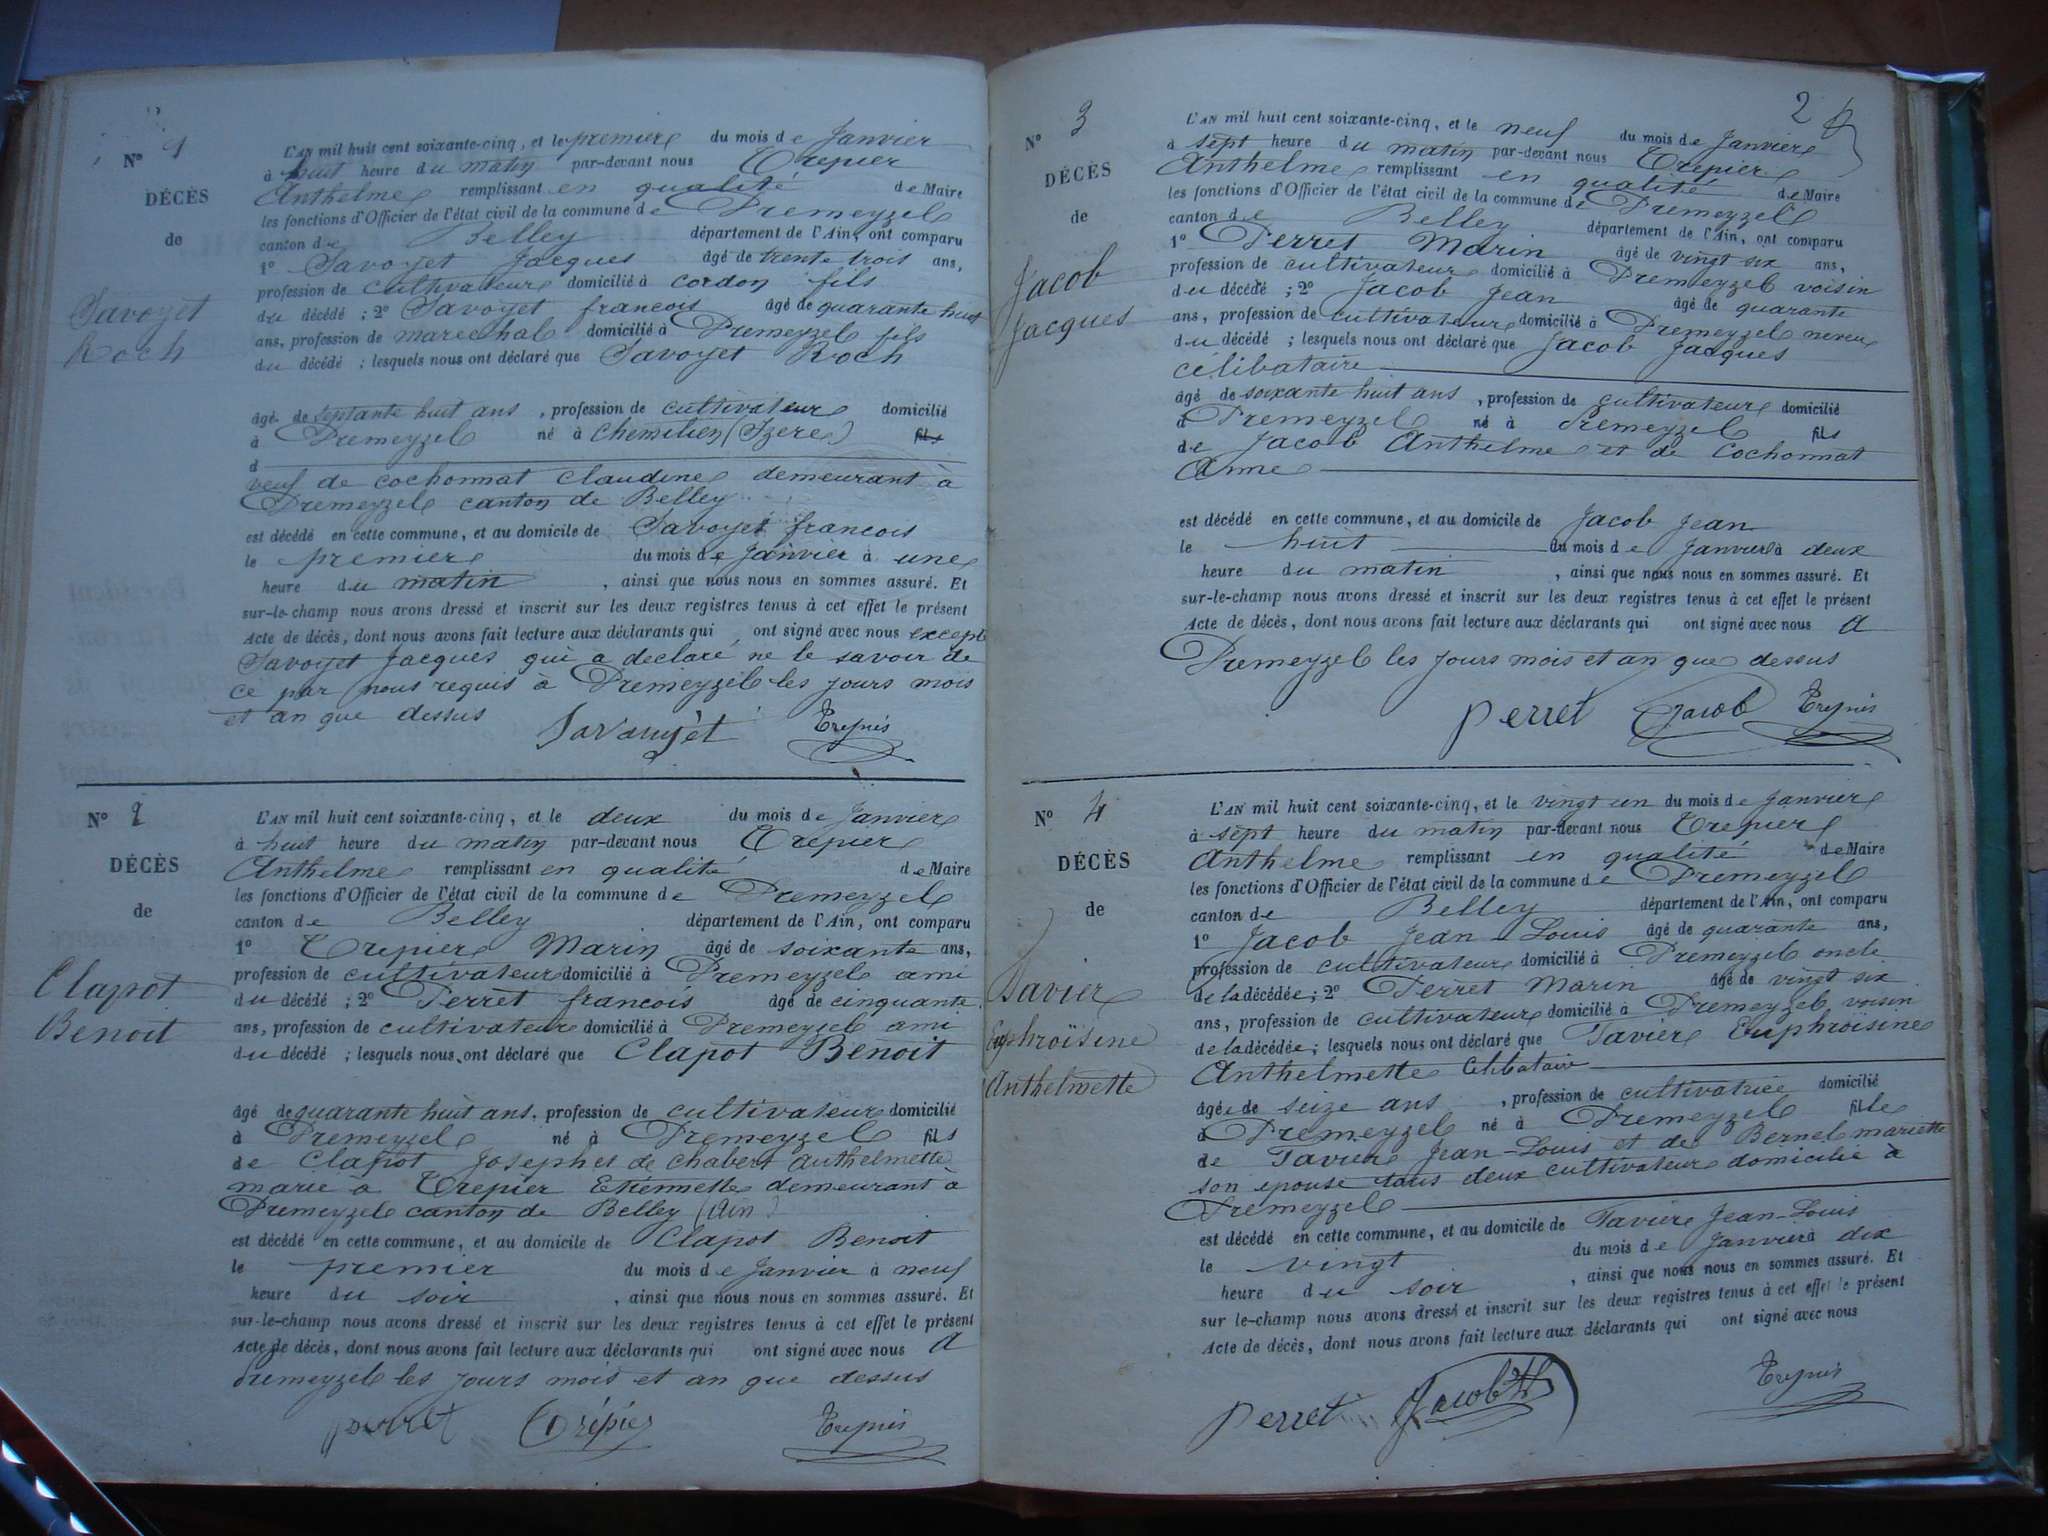 N° 1
DÉCÈS
de
Savoyet
Roch
L'AN mil huit cent soixante-cinq, et le premier du mois de Janvier
à huit heure du matin par-devant nous Trepier
Anthelme remplissant en qualité de Maire
les fonctions d'Officier de l'état civil de la commune de Premeyzel
canton de Belley département de l'Ain, ont comparu
1° Savoyet Jacques âgé de trente trois ans,
profession de cultivateur domicilié à cordon fils
du décédé ; 2° Savoyet francois âgé de quarante huit
ans, profession de marechal domicilié à Premeyzel fils
du décédé ; lesquels nous ont déclaré que Savoyet Roch
âgé de septante huit ans, profession de cultivateur domicilié
à Premeyzel né à chemilien (Izere) fils
d
veuf de cochonnat Claudine demeurant à
Premeyzel canton de Belley
est décédé en cette commune, et au domicile de Savoyet francois
le premier du mois de Janvier à une
heure du matin, ainsi que nous nous en sommes assuré. Et
sur-le-champ nous avons dressé et inscrit sur les deux registres tenus à cet effet le présent
Acte de décès, dont nous avons fait lecture aux déclarants qui ont signé avec nous except
Savoyet Jacques qui a declaré ne le savoir de
ce par nous requis à Premeyzel les jours mois
et an que dessus
Savouyèt Trepier
N° 2
DÉCÈS
de
Clapot
Benoit
L'AN mil huit cent soixante-cinq, et le deux du mois de Janvier
à huit heure du matin par-devant nous Trepier
Anthelme remplissant en qualité de Maire
les fonctions d'Officier de l'état civil de la commune de Premeyzel
canton de Belley département de l'Ain, ont comparu
1° Trepier Marin âgé de soixante ans,
profession de cultivateur domicilié à Premeyzel ami
du décédé ; 2° Perret francois âgé de cinquante
ans, profession de cultivateur domicilié à Premeyzel ami
du décédé ; lesquels nous ont déclaré que Clapot Benoit
âgé de quarante huit ans, profession de cultivateur domicilié
à Premeyzel né à Premeyzel fils
de Clapot Joseph et de Chabert Anthelmette
marié à Trepier Etiennette demeurant à
Premeyzel canton de Belley (Ain)
est décédé en cette commune, et au domicile de Clapot Benoit
le premier du mois de Janvier à neuf
heure du soir, ainsi que nous nous en sommes assuré. Et
sur-le-champ nous avons dressé et inscrit sur les deux registres tenus à cet effet le présent
Acte de décès, dont nous avons fait lecture aux déclarants qui ont signé avec nous A
Premeyzel les jours mois et an que dessus
perret Trépier Trepier
2
N° 3
DÉCÈS
de
Jacob
Jacques
L'AN mil huit cent soixante-cinq, et le neuf du mois de Janvier
à sept heure du matin par-devant nous Trepier
Anthelme remplissant en qualité de Maire
les fonctions d'Officier de l'état civil de la commune de Premeyzel
canton de Belley département de l'Ain, ont comparu
1° Perret Marin âgé de vingt six ans,
profession de cultivateur domicilié à Premeyzel voisin
du décédé ; 2° Jacob Jean âgé de quarante
ans, profession de cultivateur domicilié à Premeyzel neveu
du décédé ; lesquels nous ont déclaré que Jacob Jacques
célibataire
âgé de soixante huit ans, profession de cultivateur domicilié
à Premeyzel né à Premeyzel fils
de Jacob Anthelme et de Cochonnat
Anne
est décédé en cette commune, et au domicile de Jacob Jean
le huit du mois de Janvier à deux
heure du matin, ainsi que nous nous en sommes assuré. Et
sur-le-champ nous avons dressé et inscrit sur les deux registres tenus à cet effet le présent
Acte de décès, dont nous avons fait lecture aux déclarants qui ont signé avec nous A
Premeyzel les jours mois et an que dessus
perret Jacob Trepier
N° 4
DÉCÈS
de
Tavier
Euphroïsine
Anthelmette
L'AN mil huit cent soixante-cinq, et le vingt un du mois de Janvier
à sept heure du matin par-devant nous Trepier
Anthelme remplissant en qualité de Maire
les fonctions d'Officier de l'état civil de la commune de Premeyzel
canton de Belley département de l'Ain, ont comparu
1° Jacob Jean-Louis âgé de quarante ans,
profession de cultivateur domicilié à Premeyzel oncle
de la décédée ; 2° Perret Marin âgé de vingt six
ans, profession de cultivateur domicilié à Premeyzel voisin
de la décédée ; lesquels nous ont déclaré que Tavier Euphroïsine
Anthelmette Celibataire
âgée de seize ans, profession de cultivatrice domicilié
à Premeyzel né à Premeyzel fille
de Tavier Jean-Louis et de Bernel mariette
son epouse tous deux cultivateur domicilié à
Premeyzel
est décédé en cette commune, et au domicile de Tavier Jean-Louis
le vingt du mois de Janvier à dix
heure du soir, ainsi que nous nous en sommes assuré. Et
sur le-champ nous avons dressé et inscrit sur les deux registres tenus à cet effet le présent
Acte de décès, dont nous avons fait lecture aux déclarants qui ont signé avec nous
perret Jacob Trepier